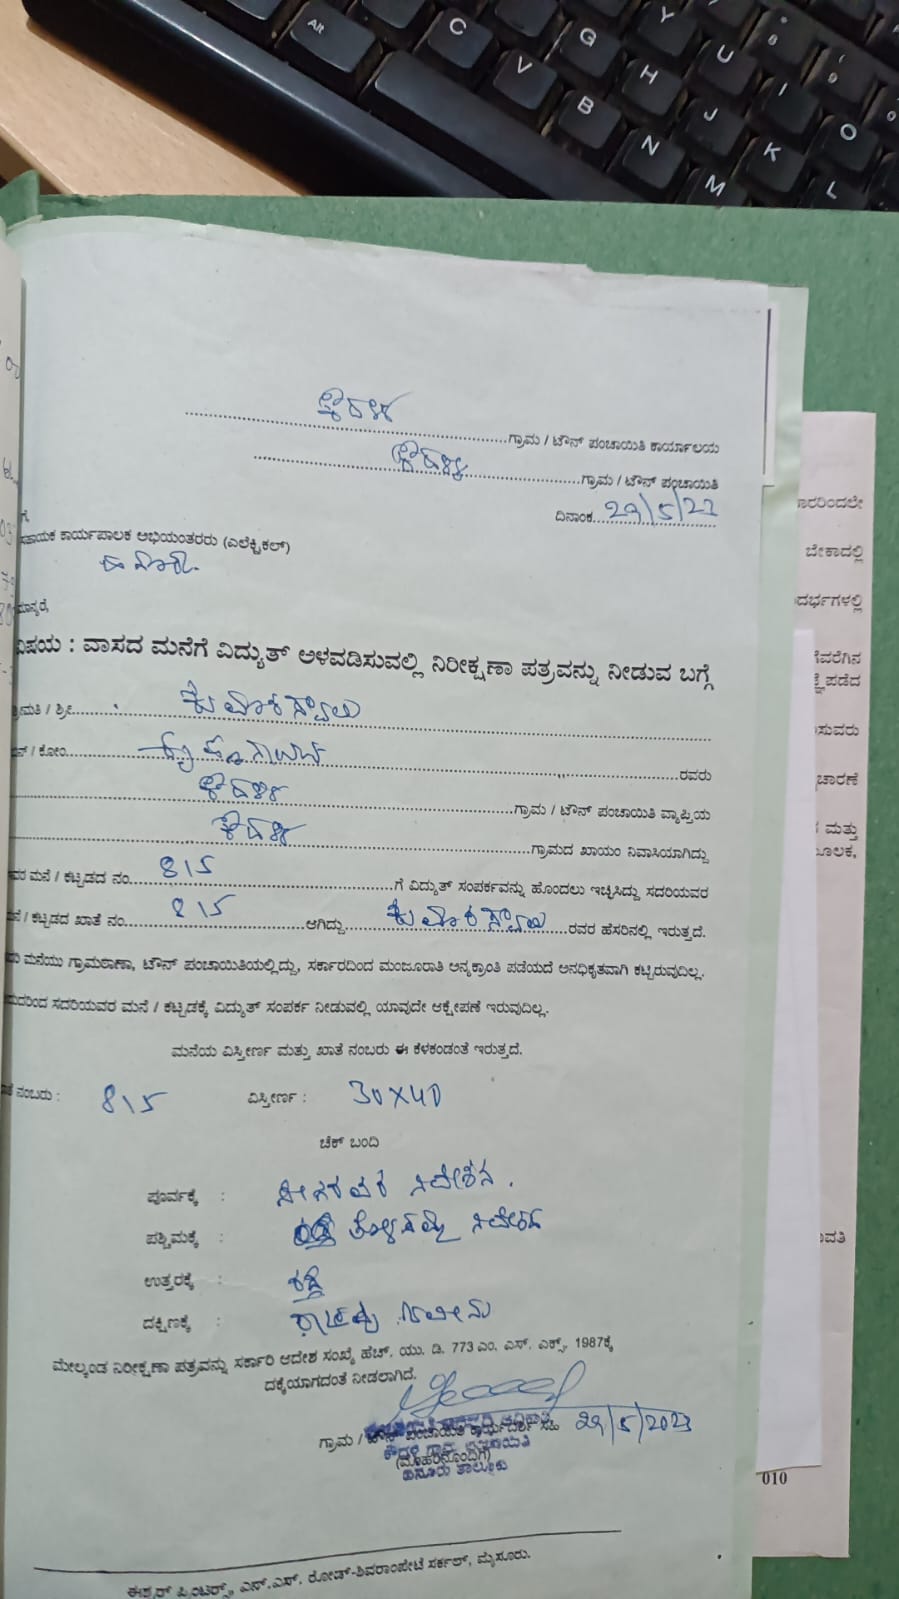 Alt
C
V
G
B
Y
H
N
U
J
M
I
K
O
L
ಕೌದಳ್ಳಿ
ಗ್ರಾಮ / ಟೌನ್ ಪಂಚಾಯಿತಿ ಕಾರ್ಯಾಲಯ
ಕೌದಳ್ಳಿ
ಗ್ರಾಮ / ಟೌನ್ ಪಂಚಾಯಿತಿ
ದಿನಾಂಕ 29/5/23
ಗೆ,
ಸಹಾಯಕ ಕಾರ್ಯಪಾಲಕ ಅಭಿಯಂತರರು (ಎಲೆಕ್ಟ್ರಿಕಲ್)
ಮಾನ್ಯರೆ,
ವಿಷಯ : ವಾಸದ ಮನೆಗೆ ವಿದ್ಯುತ್ ಅಳವಡಿಸುವಲ್ಲಿ ನಿರೀಕ್ಷಣಾ ಪತ್ರವನ್ನು ನೀಡುವ ಬಗ್ಗೆ
ಶ್ರೀಮತಿ / ಶ್ರೀ ಕುಮಾರಸ್ವಾಮಿ
ಬಿನ್ / ಕೋಂ ರವರು
ಕೌದಳ್ಳಿ ಗ್ರಾಮ / ಟೌನ್ ಪಂಚಾಯಿತಿ ವ್ಯಾಪ್ತಿಯ
ಕೌದಳ್ಳಿ ಗ್ರಾಮದ ಖಾಯಂ ನಿವಾಸಿಯಾಗಿದ್ದು
ಮನೆ / ಕಟ್ಟಡದ ನಂ 815 ಗೆ ವಿದ್ಯುತ್ ಸಂಪರ್ಕವನ್ನು ಹೊಂದಲು ಇಚ್ಛಿಸಿದ್ದು ಸದರಿಯವರ
ಮನೆ / ಕಟ್ಟಡದ ಖಾತೆ ನಂ 815 ಆಗಿದ್ದು ಕುಮಾರಸ್ವಾಮಿ ರವರ ಹೆಸರಿನಲ್ಲಿ ಇರುತ್ತದೆ.
ಮನೆಯು ಗ್ರಾಮಠಾಣಾ, ಟೌನ್ ಪಂಚಾಯಿತಿಯಲ್ಲಿದ್ದು, ಸರ್ಕಾರದಿಂದ ಮಂಜೂರಾತಿ ಅನ್ಯಕ್ರಾಂತಿ ಪಡೆಯದೆ ಅನಧಿಕೃತವಾಗಿ ಕಟ್ಟಿರುವುದಿಲ್ಲ.
ಸದರಿಯವರ ಮನೆ / ಕಟ್ಟಡಕ್ಕೆ ವಿದ್ಯುತ್ ಸಂಪರ್ಕ ನೀಡುವಲ್ಲಿ ಯಾವುದೇ ಆಕ್ಷೇಪಣೆ ಇರುವುದಿಲ್ಲ.
ಮನೆಯ ವಿಸ್ತೀರ್ಣ ಮತ್ತು ಖಾತೆ ನಂಬರು ಈ ಕೆಳಕಂಡಂತೆ ಇರುತ್ತದೆ.
ನಂಬರು : 815 ವಿಸ್ತೀರ್ಣ : 30X40
ಚೆಕ್ ಬಂದಿ
ಪೂರ್ವಕ್ಕೆ : ನಿವೇಶನ.
ಪಶ್ಚಿಮಕ್ಕೆ : ನಿವೇಶನ
ಉತ್ತರಕ್ಕೆ : ರಸ್ತೆ
ದಕ್ಷಿಣಕ್ಕೆ : ಜಮೀನು
ಮೇಲ್ಕಂಡ ನಿರೀಕ್ಷಣಾ ಪತ್ರವನ್ನು ಸರ್ಕಾರಿ ಆದೇಶ ಸಂಖ್ಯೆ ಹೆಚ್. ಯು. ಡಿ. 773 ಎಂ. ಎಸ್. ಎಕ್ಸ್, 1987ಕ್ಕೆ
ದಕ್ಕೆಯಾಗದಂತೆ ನೀಡಲಾಗಿದೆ.
ಗ್ರಾಮ / ಟೌನ್ ಪಂಚಾಯಿತಿ ಕಾರ್ಯದರ್ಶಿ ಸಹಿ 29/5/2023
(ಮೊಹರಿನೊಂದಿಗೆ)
ಹನೂರು ತಾಲ್ಲೂಕು
ಈಶ್ವರ್ ಪ್ರಿಂಟರ್ಸ್, ಎನ್.ಎಸ್. ರೋಡ್-ಶಿವರಾಂಪೇಟೆ ಸರ್ಕಲ್, ಮೈಸೂರು.
ಬೇಕಾದಲ್ಲಿ
ಪಡೆದ
ಮತ್ತು
010